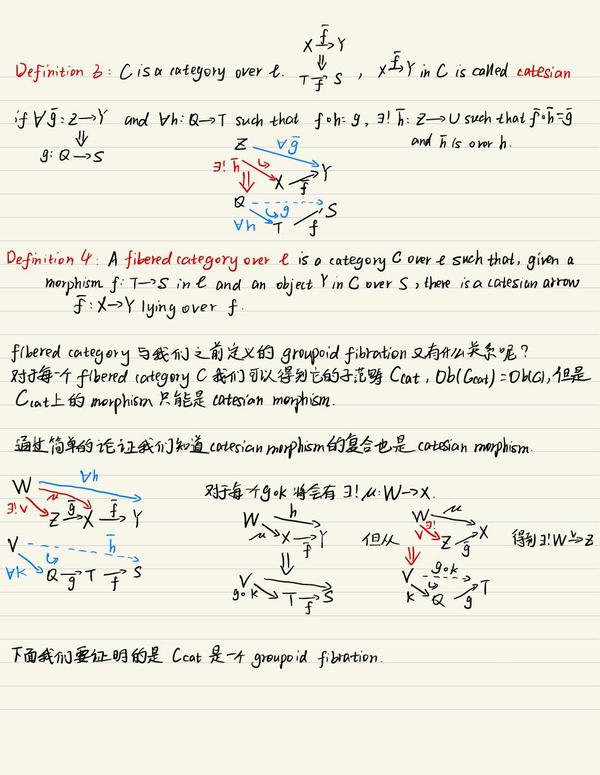 X f̄→ Y
⇓
Definition 3: C is a category over ℓ. T f→ S , X f̄→ Y in C is called catesian
if ∀ḡ: Z→Y and ∀h: Q→T such that f∘h = g, ∃! h̄: Z→U such that f̄∘h̄=ḡ
⇓
g: Q→S and h̄ is over h.
Z ∀ḡ
∃! h̄ X f̄ Y
Q g S
∀h T f
Definition 4: A fibered category over ℓ is a category C over ℓ such that, given a
morphism f: T→S in ℓ and an object Y in C over S, there is a catesian arrow
f̄: X→Y lying over f.
fibered category 与我们之前定义的 groupoid fibration 又有什么关系呢?
对于每一个 fibered category C 我们可以得到它的子范畴 Ccat, Ob(Ccat)=Ob(C), 但是
Ccat上的 morphism 只能是 catesian morphism.
通过简单的论证我们知道 catesian morphism 的复合也是 catesian morphism.
W ∀h 对于每个 g∘k 将会有 ∃! μ: W→X.
∃! ν μ Z ḡ→ X f̄→ Y
V h̄
∀k Q g→ T f→ S
W h
μ X f̄→ Y
⇓
V
g∘k T f→ S
但从
W μ
ν ∃! Z ḡ X
V g∘k
k Q g T
得到 ∃! W ν→ Z
下面我们要证明的是 Ccat 是一个 groupoid fibration.